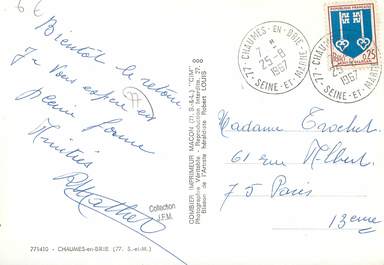 6 €
Bientôt le retour
Je vous espère en
pleine forme
Amitiés
77
Collection
J.F.M.
771410 - CHAUMES-en-BRIE (77. S.-et-M.)
COMBIER IMPRIMEUR MACON (71. S.-&-L.) "CIM"
Photographie Véritable - Reproduction Interdite. 27.
Blason de l'Artiste héraldiste Robert LOUIS
77 - CHAUMES-EN-BRIE
25-8
1967
SEINE-ET-MARNE
77 - CHAUMES-EN-
25-
1967
SEINE-ET-MARNE
0,25
Madame Crochet
61 rue Albert
75 Paris
13eme